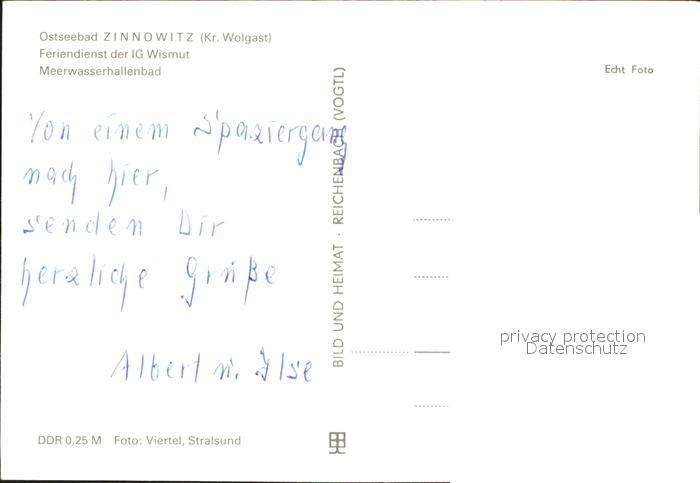 Ostseebad ZINNOWITZ (Kr. Wolgast)
Feriendienst der IG Wismut
Meerwasserhallenbad
Echt Foto
Von einem Spaziergang
nach hier,
senden Dir
herzliche Grüße
Albert u. Ilse
BILD UND HEIMAT · REICHENBACH (VOGTL)
privacy protection
Datenschutz
DDR 0,25 M Foto: Viertel, Stralsund